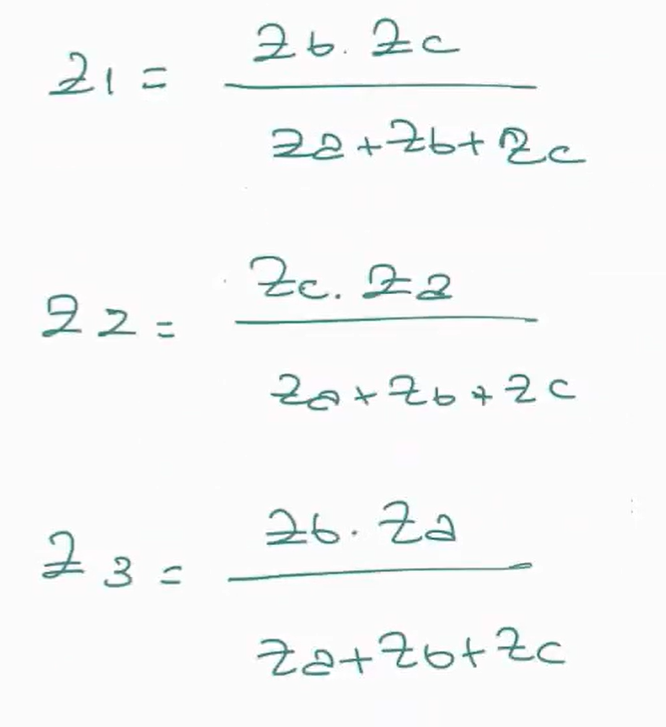 Z1 = Zb . Zc
Za + Zb + Zc
Z2 = Zc . Za
Za + Zb + Zc
Z3 = Zb . Za
Za + Zb + Zc